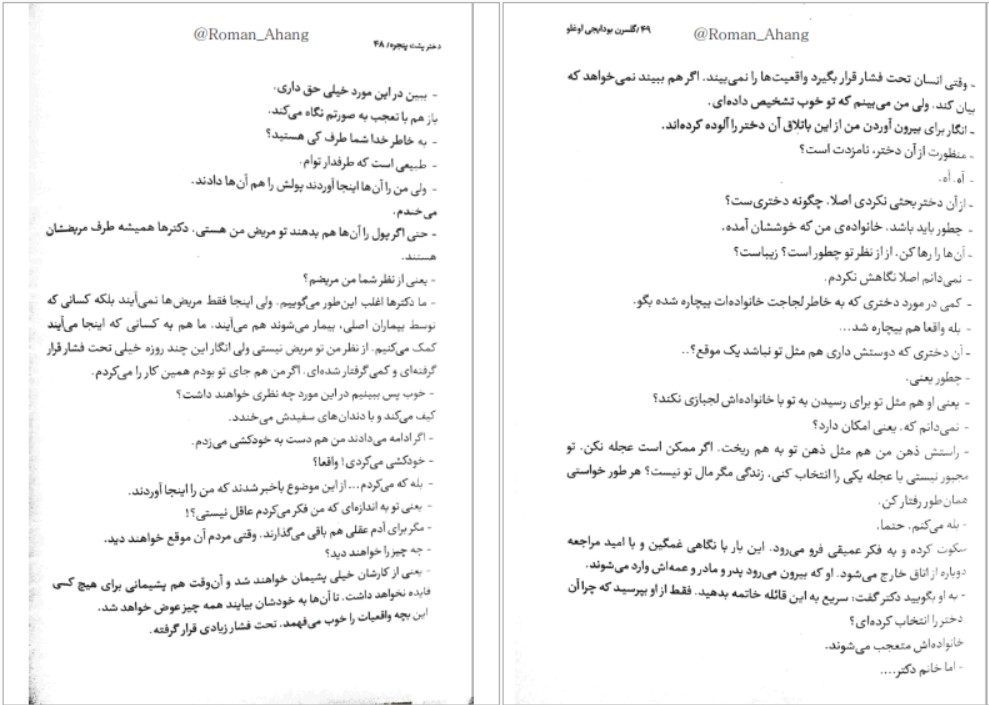 @Roman_Ahang
دختر پشت پنجره/ ۴۸
- ببین در این مورد خیلی حق داری.
باز هم با تعجب به صورتم نگاه می‌کند.
- به خاطر خدا شما طرف کی هستید؟
- طبیعی است که طرفدار توام.
- ولی من را آن‌ها اینجا آوردند پولش را هم آن‌ها دادند.
می‌خندم.
- حتی اگر پول را آن‌ها هم بدهند تو مریض من هستی. دکترها همیشه طرف مریضشان
هستند.
- یعنی از نظر شما من مریضم؟
- ما دکترها اغلب این‌طور می‌گوییم. ولی اینجا فقط مریض‌ها نمی‌آیند بلکه کسانی که
توسط بیماران اصلی، بیمار می‌شوند هم می‌آیند. ما هم به کسانی که اینجا می‌آیند
کمک می‌کنیم. از نظر من تو مریض نیستی ولی انگار این چند روزه خیلی تحت فشار قرار
گرفته‌ای و کمی گرفتار شده‌ای. اگر من هم جای تو بودم همین کار را می‌کردم.
- خوب پس ببینیم در این مورد چه نظری خواهند داشت؟
کیف می‌کند و با دندان‌های سفیدش می‌خندد.
- اگر ادامه می‌دادند من هم دست به خودکشی می‌زدم.
- خودکشی می‌کردی! واقعا؟
- بله که می‌کردم... از این موضوع باخبر شدند که من را اینجا آوردند.
- یعنی تو به اندازه‌ای که من فکر می‌کردم عاقل نیستی؟!
- مگر برای آدم عقلی هم باقی می‌گذارند. وقتی مردم آن موقع خواهند دید.
- چه چیز را خواهند دید؟
- یعنی از کارشان خیلی پشیمان خواهند شد و آن‌وقت هم پشیمانی برای هیچ کسی
فایده نخواهد داشت. تا آن‌ها به خودشان بیایند همه چیز عوض خواهد شد.
این بچه واقعیات را خوب می‌فهمد. تحت فشار زیادی قرار گرفته.
@Roman_Ahang
۴۹ /گلسرن بودایجی اوغلو
- وقتی انسان تحت فشار قرار بگیرد واقعیت‌ها را نمی‌بیند. اگر هم ببیند نمی‌خواهد که
بیان کند. ولی من می‌بینم که تو خوب تشخیص داده‌ای.
- انگار برای بیرون آوردن من از این باتلاق آن دختر را آلوده کرده‌اند.
- منظورت از آن دختر، نامزدت است؟
- آه. آه.
- از آن دختر بحثی نکردی اصلا. چگونه دختری‌ست؟
- چطور باید باشد. خانواده‌ی من که خوششان آمده.
- آن‌ها را رها کن. از از نظر تو چطور است؟ زیباست؟
- نمی‌دانم اصلا نگاهش نکردم.
- کمی در مورد دختری که به خاطر لجاجت خانواده‌ات بیچاره شده بگو.
- بله واقعا هم بیچاره شد...
- آن دختری که دوستش داری هم مثل تو نباشد یک موقع؟..
- چطور یعنی.
- یعنی او هم مثل تو برای رسیدن به تو با خانواده‌اش لجبازی نکند؟
- نمی‌دانم که. یعنی امکان دارد؟
- راستش ذهن من هم مثل ذهن تو به هم ریخت. اگر ممکن است عجله نکن. تو
مجبور نیستی با عجله یکی را انتخاب کنی. زندگی مگر مال تو نیست؟ هر طور خواستی
همان‌طور رفتار کن.
- بله می‌کنم. حتما.
سکوت کرده و به فکر عمیقی فرو می‌رود. این بار با نگاهی غمگین و با امید مراجعه
دوباره از اتاق خارج می‌شود. او که بیرون می‌رود پدر و مادر و عمه‌اش وارد می‌شوند.
- به او بگویید دکتر گفت، سریع به این قائله خاتمه بدهید. فقط از او بپرسید که چرا آن
دختر را انتخاب کرده‌ای؟
خانواده‌اش متعجب می‌شوند.
- اما خانم دکتر....